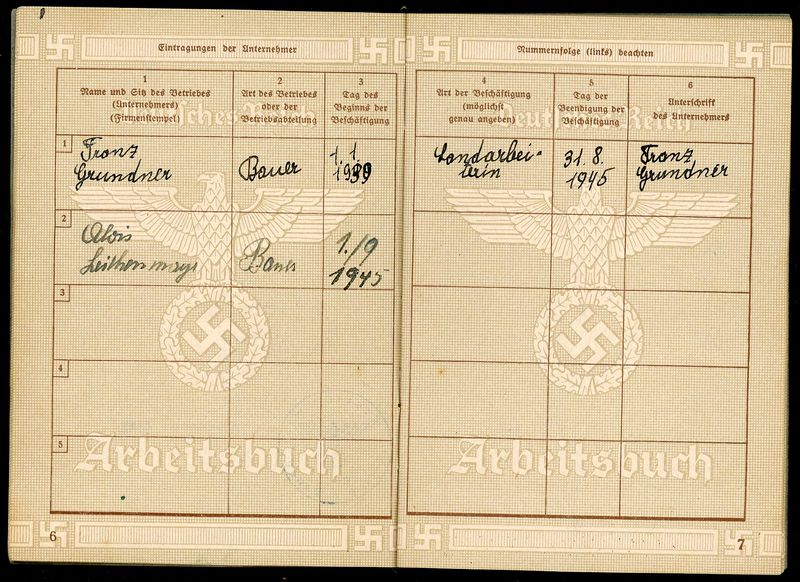 Eintragungen der Unternehmer
Nummernfolge (links) beachten
1
Name und Sitz des Betriebes
(Unternehmers)
(Firmenstempel)
2
Art des Betriebes
oder der
Betriebsabteilung
3
Tag des
Beginns der
Beschäftigung
4
Art der Beschäftigung
(möglichst
genau angeben)
5
Tag der
Beendigung der
Beschäftigung
6
Unterschrift
des Unternehmers
Deutsches Reich
Deutsches Reich
1
Franz
Grundner
Bauer
1. 1.
1939
Landarbei-
terin
31. 8.
1945
Franz
Grundner
2
Alois
Bauer
1./9
1945
3
4
5
Arbeitsbuch
Arbeitsbuch
6
7